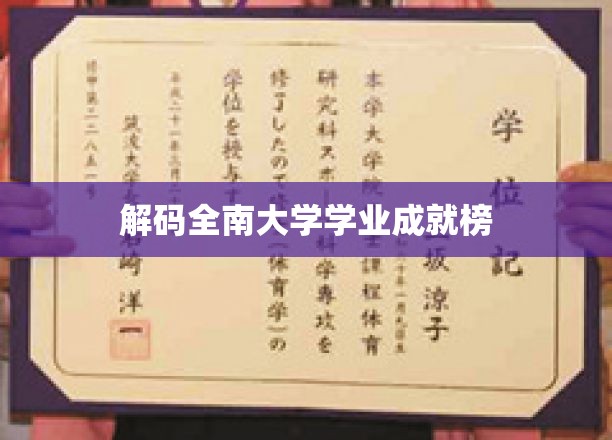 解码全南大学学业成就榜
学位記
坂涼子
本学大学院 士課程体育
研究科スポー 科学専攻を
修了したので修 (体育学)の
学位を授与す
平成二十一年三月二十
筑波大学 岩崎洋一
修甲第二二八五一号